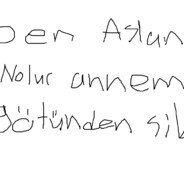 Ben Aslan
Nolur annem
götünden sik